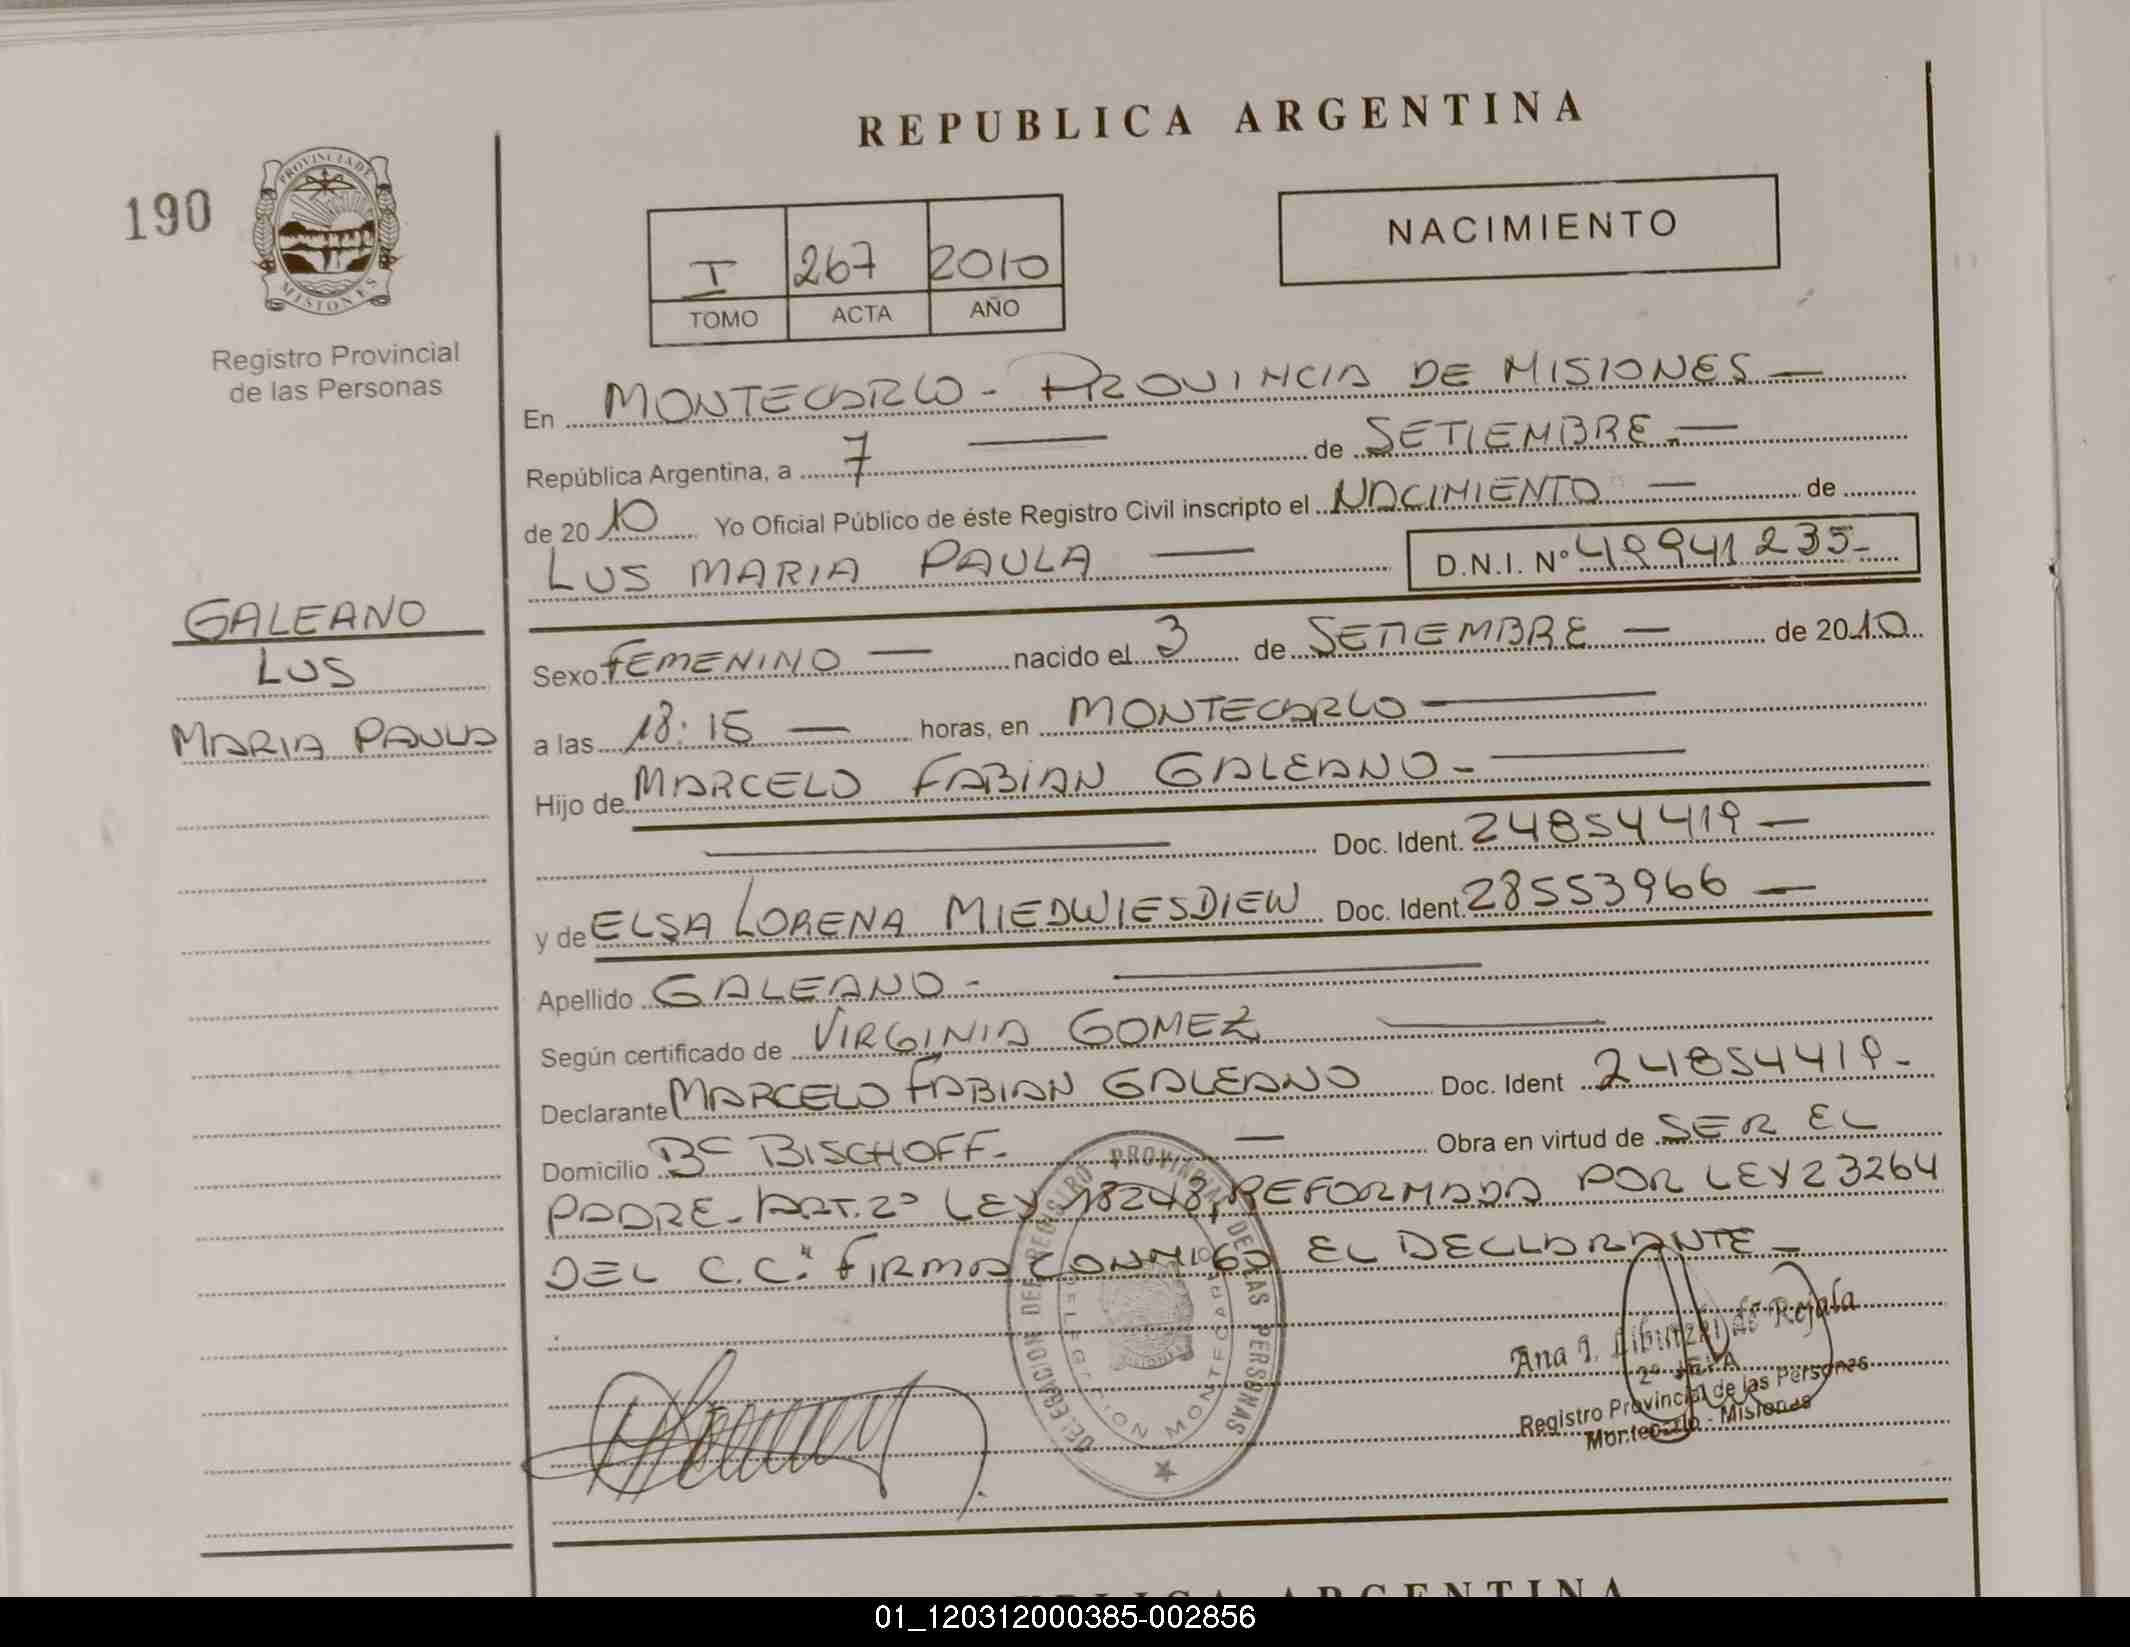 REPUBLICA ARGENTINA
190
PROVINCIA DE
MISIONES
Registro Provincial
de las Personas
NACIMIENTO
I 267 2010
TOMO ACTA AÑO
En MONTECARLO - PROVINCIA DE MISIONES —
República Argentina, a 7 — de SETIEMBRE. —
de 2010 Yo Oficial Público de éste Registro Civil inscripto el NACIMIENTO — de
LUS MARIA PAULA — D.N.I. Nº 49941235-
GALEANO
LUS
MARIA PAULA
Sexo FEMENINO — nacido el 3 de SETIEMBRE — de 2010
a las 18:15 — horas, en MONTECARLO —
Hijo de MARCELO FABIAN GALEANO - —
— Doc. Ident. 24854419 —
y de ELSA LORENA MIEDWIESDIEW Doc. Ident. 28553966 —
Apellido GALEANO - —
Según certificado de VIRGINIA GOMEZ —
Declarante MARCELO FABIAN GALEANO Doc. Ident 24854419-
Domicilio Bº BISCHOFF. — Obra en virtud de SER EL
PADRE - ART. 2º LEY 18248, REFORMADA POR LEY 23264
DEL C.C." FIRMA CONMIGO EL DECLARANTE —
DELEGACION DEL REGISTRO PROVINCIAL DE LAS PERSONAS
DELEGACION MONTECARLO
Ana I. de Rojala
2º JEFA
Registro Provincial de las Personas
Montecarlo - Misiones
REPUBLICA ARGENTINA
01_120312000385-002856